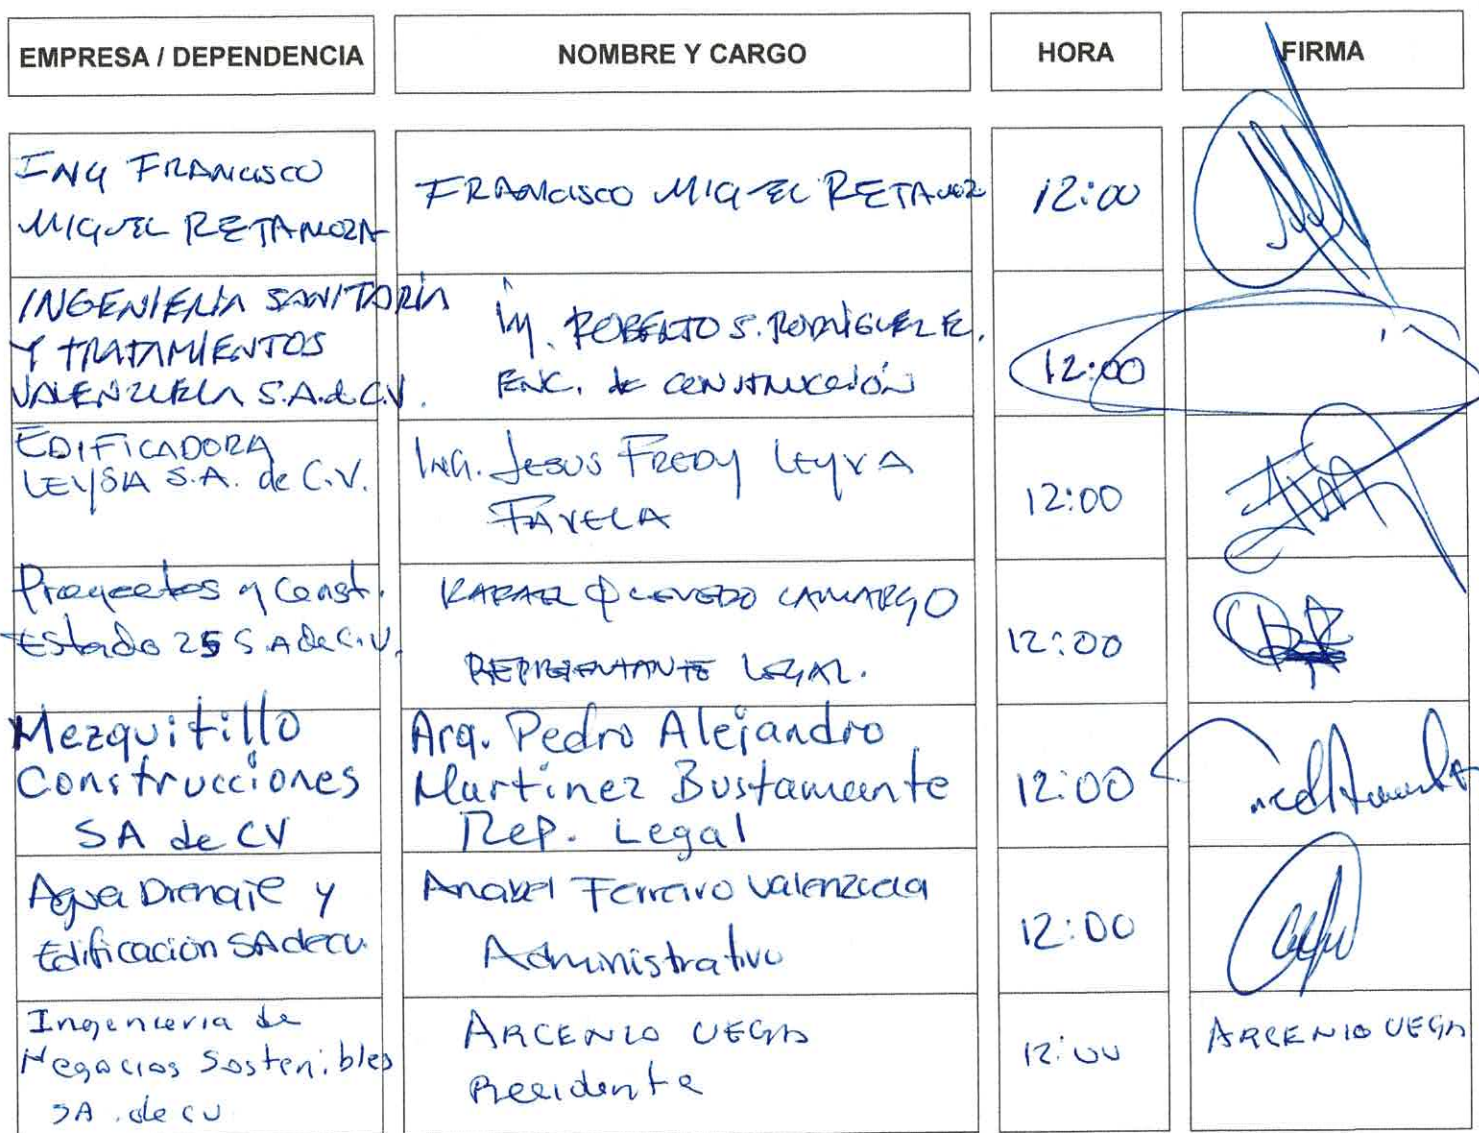 EMPRESA / DEPENDENCIA
NOMBRE Y CARGO
HORA
FIRMA
ING FRANCISCO
MIGUEL RETAMOZA
FRANCISCO MIGUEL RETAMOZ
12:00
INGENIERIA SANITARIA
Y TRATAMIENTOS
VALENZUELA S.A. de C.V.
ing. ROBERTO S. RODRIGUEZ E.
ENC. de CONSTRUCCIÓN
12:00
EDIFICADORA
LEYSA S.A. de C.V.
ING. JESUS FREDY LEYVA
FAVELA
12:00
Proyectos y Const.
Estado 25 S.A de C.V.
RAFAEL QUEVEDO CAMARGO
REPRESENTANTE LEGAL.
12:00
Mezquitillo
Construcciones
SA de CV
Arq. Pedro Alejandro
Martínez Bustamante
Rep. Legal
12:00
Agua Drenaje y
Edificación SA de CV.
Anabel Ferreiro Valenzuela
Administrativo
12:00
Ingenieria de
Negocios Sostenibles
SA. de CV
ARCENIO VEGA
Residente
12:00
ARCENIO VEGA